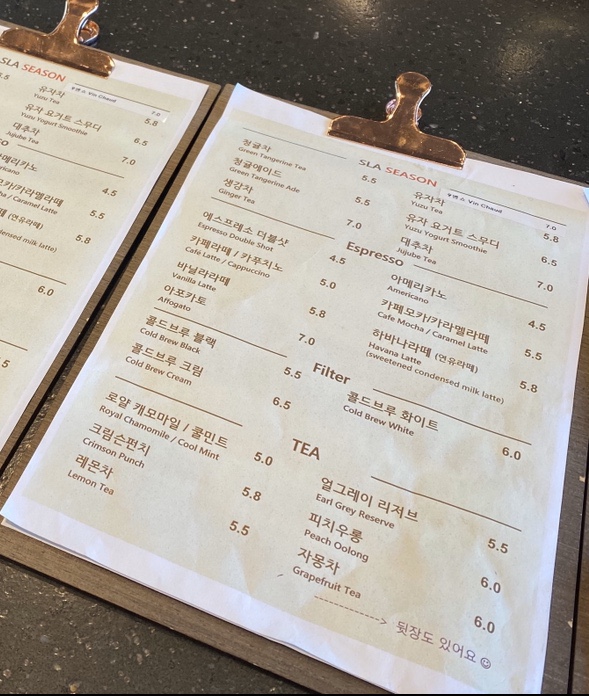 SLA SEASON
유자차
Yuzu Tea
Vin Chaud 7.0
유자 요거트 스무디 5.8
Yuzu Yogurt Smoothie
대추차 6.5
Jujube Tea
7.0
메리카노
4.5
모카/카라멜라떼
Caramel Latte 5.5
(연유라떼)
5.8
densed milk latte)
6.0
SLA SEASON
청귤차
Green Tangerine Tea 5.5
청귤에이드
Green Tangerine Ade 5.5
생강차
Ginger Tea 7.0
Vin Chaud 7.0
유자차
Yuzu Tea 5.8
유자 요거트 스무디
Yuzu Yogurt Smoothie 6.5
대추차
Jujube Tea 7.0
Espresso
에스프레소 더블샷
Espresso Double Shot 4.5
카페라떼 / 카푸치노
Café Latte / Cappuccino 5.0
바닐라라떼
Vanilla Latte 5.8
아포카토
Affogato 7.0
아메리카노
Americano 4.5
카페모카/카라멜라떼
Cafe Mocha / Caramel Latte 5.5
하바나라떼 (연유라떼)
Havana Latte 5.8
(sweetened condensed milk latte)
Filter
콜드브루 블랙
Cold Brew Black 5.5
콜드브루 크림
Cold Brew Cream 6.5
콜드브루 화이트
Cold Brew White 6.0
TEA
로얄 캐모마일 / 쿨민트
Royal Chamomile / Cool Mint 5.0
크림슨펀치
Crimson Punch 5.8
레몬차
Lemon Tea 5.5
얼그레이 리저브
Earl Grey Reserve 5.5
피치우롱
Peach Oolong 6.0
자몽차
Grapefruit Tea 6.0
------------> 뒷장도 있어요 ☺